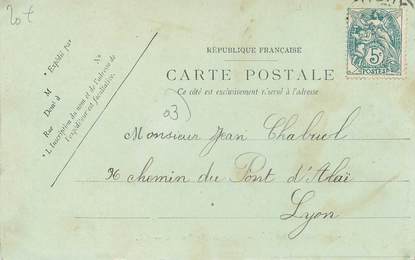 20 t
RÉPUBLIQUE FRANÇAISE
CARTE POSTALE
Ce côté est exclusivement réservé à l'adresse
5c
POSTES
* Expédié par
M
No
Demt à
Rue
* L'Inscription du nom et de l'adresse de
l'expéditeur est facultative.
03)
Monsieur Jean Chabuel
36 chemin du Pont d'Alaï
Lyon